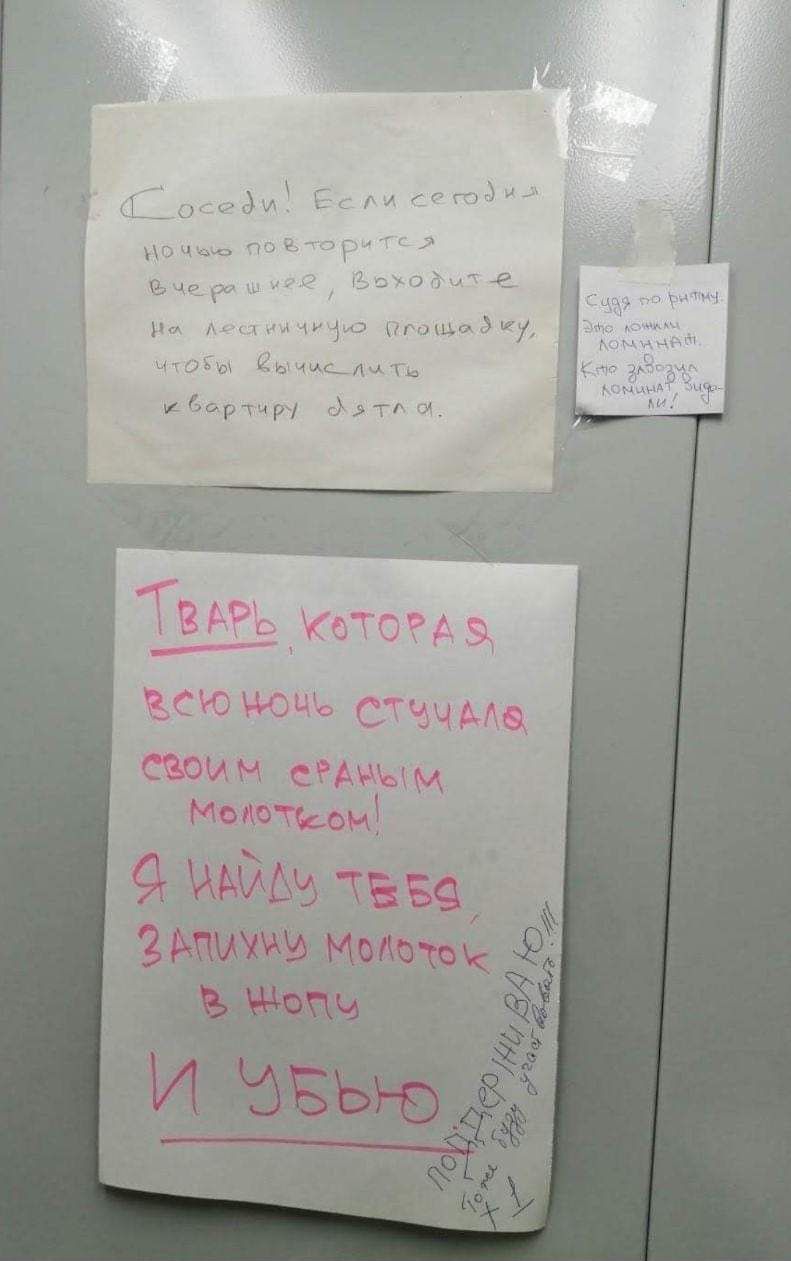 Соседи! Если сегодня
ночью повторится
вчерашнее, выходите
на лестничную площадку,
чтобы вычислить
квартиру дятла.
Судя по ритму.
Это ложили
ломинат.
Кто
ломинат видe-
ли!
Тварь, которая
всю ночь стучала
своим сраным
молотком!
Я найду тебя,
запихну молоток
в жопу
и убью
ПОДДЕРЖИВАЮ
Тоже буду участвовать!!!
+1